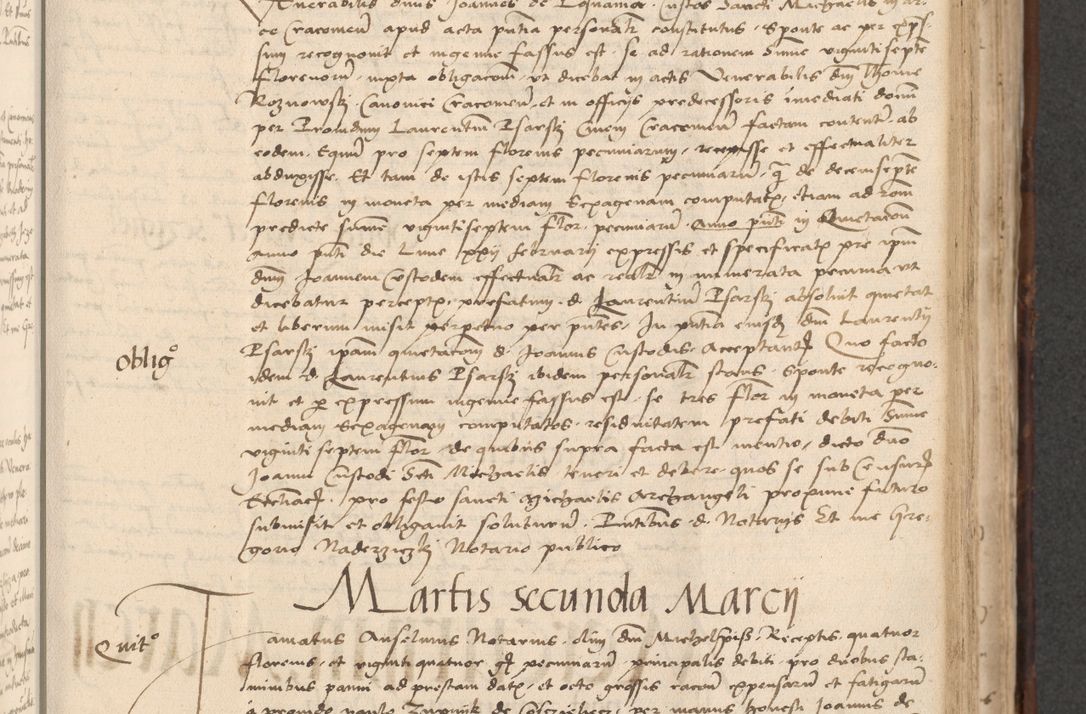 Venerabilis dnus Joannes de Costos Sancti Michaelis in ar-
ce Cracovien apud acta pntia personalr constitutus, sponte ac per expres-
sum recognovit et ingenue fassus est, se ad rationem summe vigintiseptem
florenorum, iuxta obligacom, ut dicebat in actis Venerabilis dni Thome
Roznowskj Canonici Cracovien, et in officijs predecessoris imediati domi
per Providum Laurentium Psarskj Civem Cracovien factam contentam, ab
eodem, Equum pro septem florenis pecuniarum, recepisse et effectualiter
abduxisse. Et tam de istis septem florenis pecuniarum, q de decemsepte
florenis in moneta per mediam sexagenam computatx, etiam ad rom
predicte summe vigintiseptem flor. pecuniarum in Quietacom
anno pnti die Lune xxij februarij expressis et specificatx pre ipm
dnm Joannem Custodem effectualr ac realr in numerata pecunia ut
dicebatur perceptx, prefatum d. Laurentium Psarskj absolvit quietat
et liberum misit perpetuo per pntes. In pntia eiusdem dni Laurentij
Psarskj ipam quietacom d. Joannis Custodis acceptantis Quo facto
oblig°
idem d. Laurentius Psarskj ibidem personalr stans, sponte recogno-
vit et p expressum ingenue fassus est, se tres flor in moneta per
mediam sexagenam computatos, residuitatem prefati debiti Summe
viginti septem flor, de quibus supra facta est mentio, dicto dno
Joanni Custodi Scti Michaelis teneri et debere, quos se sub Censuris
Ecclia, pro festo sancti Michaelis Archangeli proxime futuro
submisit et obligavit soluturum. Pntibus d. Notarijs Et me Gre-
gorio Naderziczkj Notario publico
Martis secunda Marcij
Quit°
Tamatus Anselmus Notarius, olim dni Receptis quatuor
florenis, et viginti quatuor g pecuniarum, principalis debiti, pro duobus sta-
minibus panni ad prestam datx, et octo grossis racom expensarum et fatigarum
a provido per manus honesti Joannis de